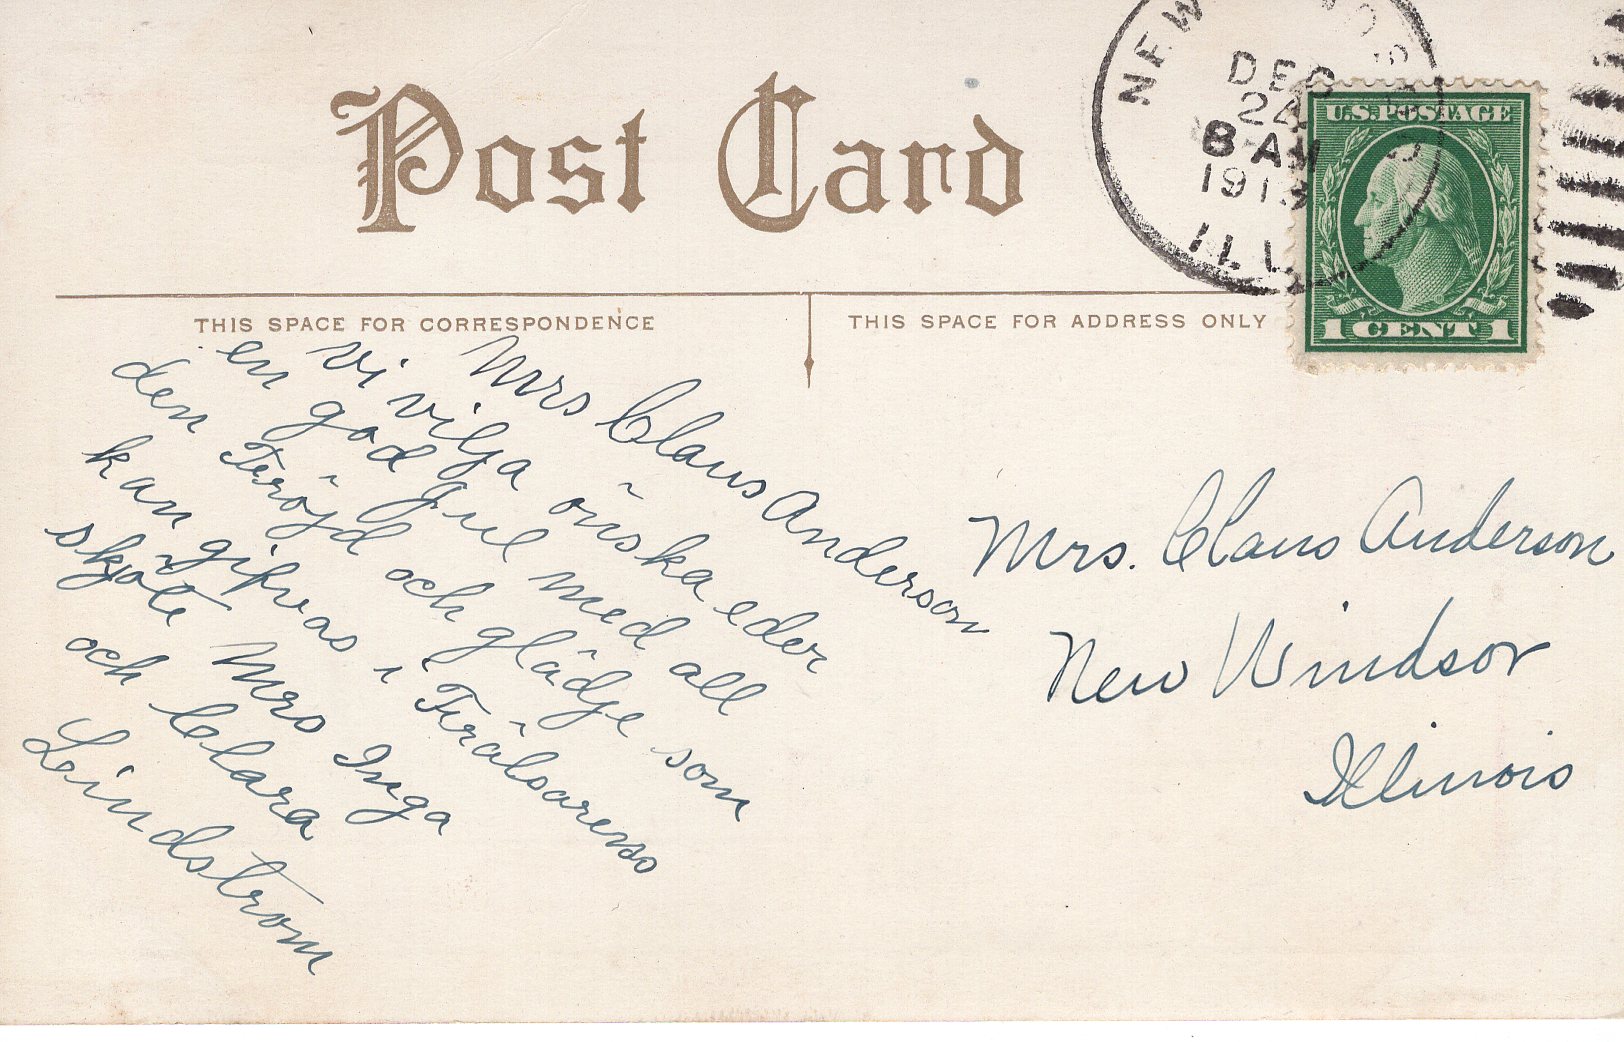 Post Card
NEW
DEC
24
8 AM
191
ILL
U.S. POSTAGE
1 CENT 1
THIS SPACE FOR CORRESPONDENCE
THIS SPACE FOR ADDRESS ONLY
Mrs Claus Anderson
vi vilja önska eder
en god Jul med all
den Fröjd och glädje som
kan gifvas i Frälsarens
sköte Mrs Inga
och Clara
Lindstrom
Mrs. Claus Anderson
New Windsor
Illinois